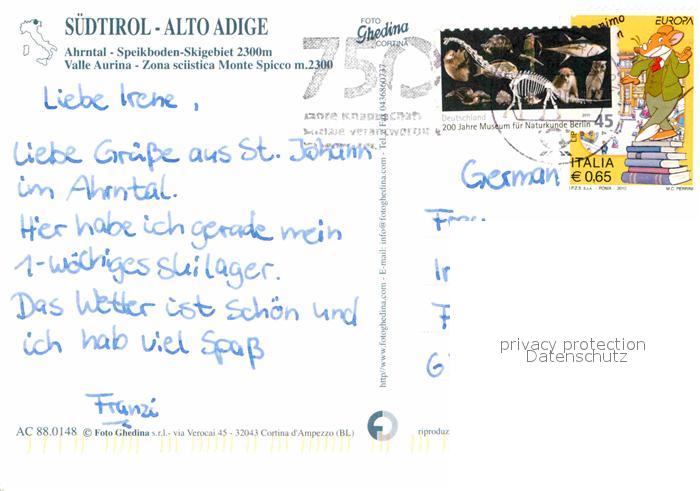 SÜDTIROL - ALTO ADIGE
Ahrntal - Speikboden-Skigebiet 2300m
Valle Aurina - Zona sciistica Monte Spicco m.2300
Liebe Irene,
Liebe Grüße aus St. Johann
im Ahrntal.
Hier habe ich gerade mein
1-wöchiges Skilager.
Das Wetter ist schön und
ich hab viel Spaß
Franzi
AC 88.0148 © Foto Ghedina s.r.l. - via Verocai 45 - 32043 Cortina d'Ampezzo (BL)
FOTO
Ghedina
CORTINA
http://www.fotoghedina.com - E-mail: info@fotoghedina.com - Tel. e Fax 0436860737
750
Jahre Knappschaft
Deutschland
45
200 Jahre Museum für Naturkunde Berlin
EUROPA
ITALIA
€ 0,65
I.P.Z.S. S.p.A. - ROMA - 2010
M.C. PERRINI
German
privacy protection
Datenschutz
reproduz